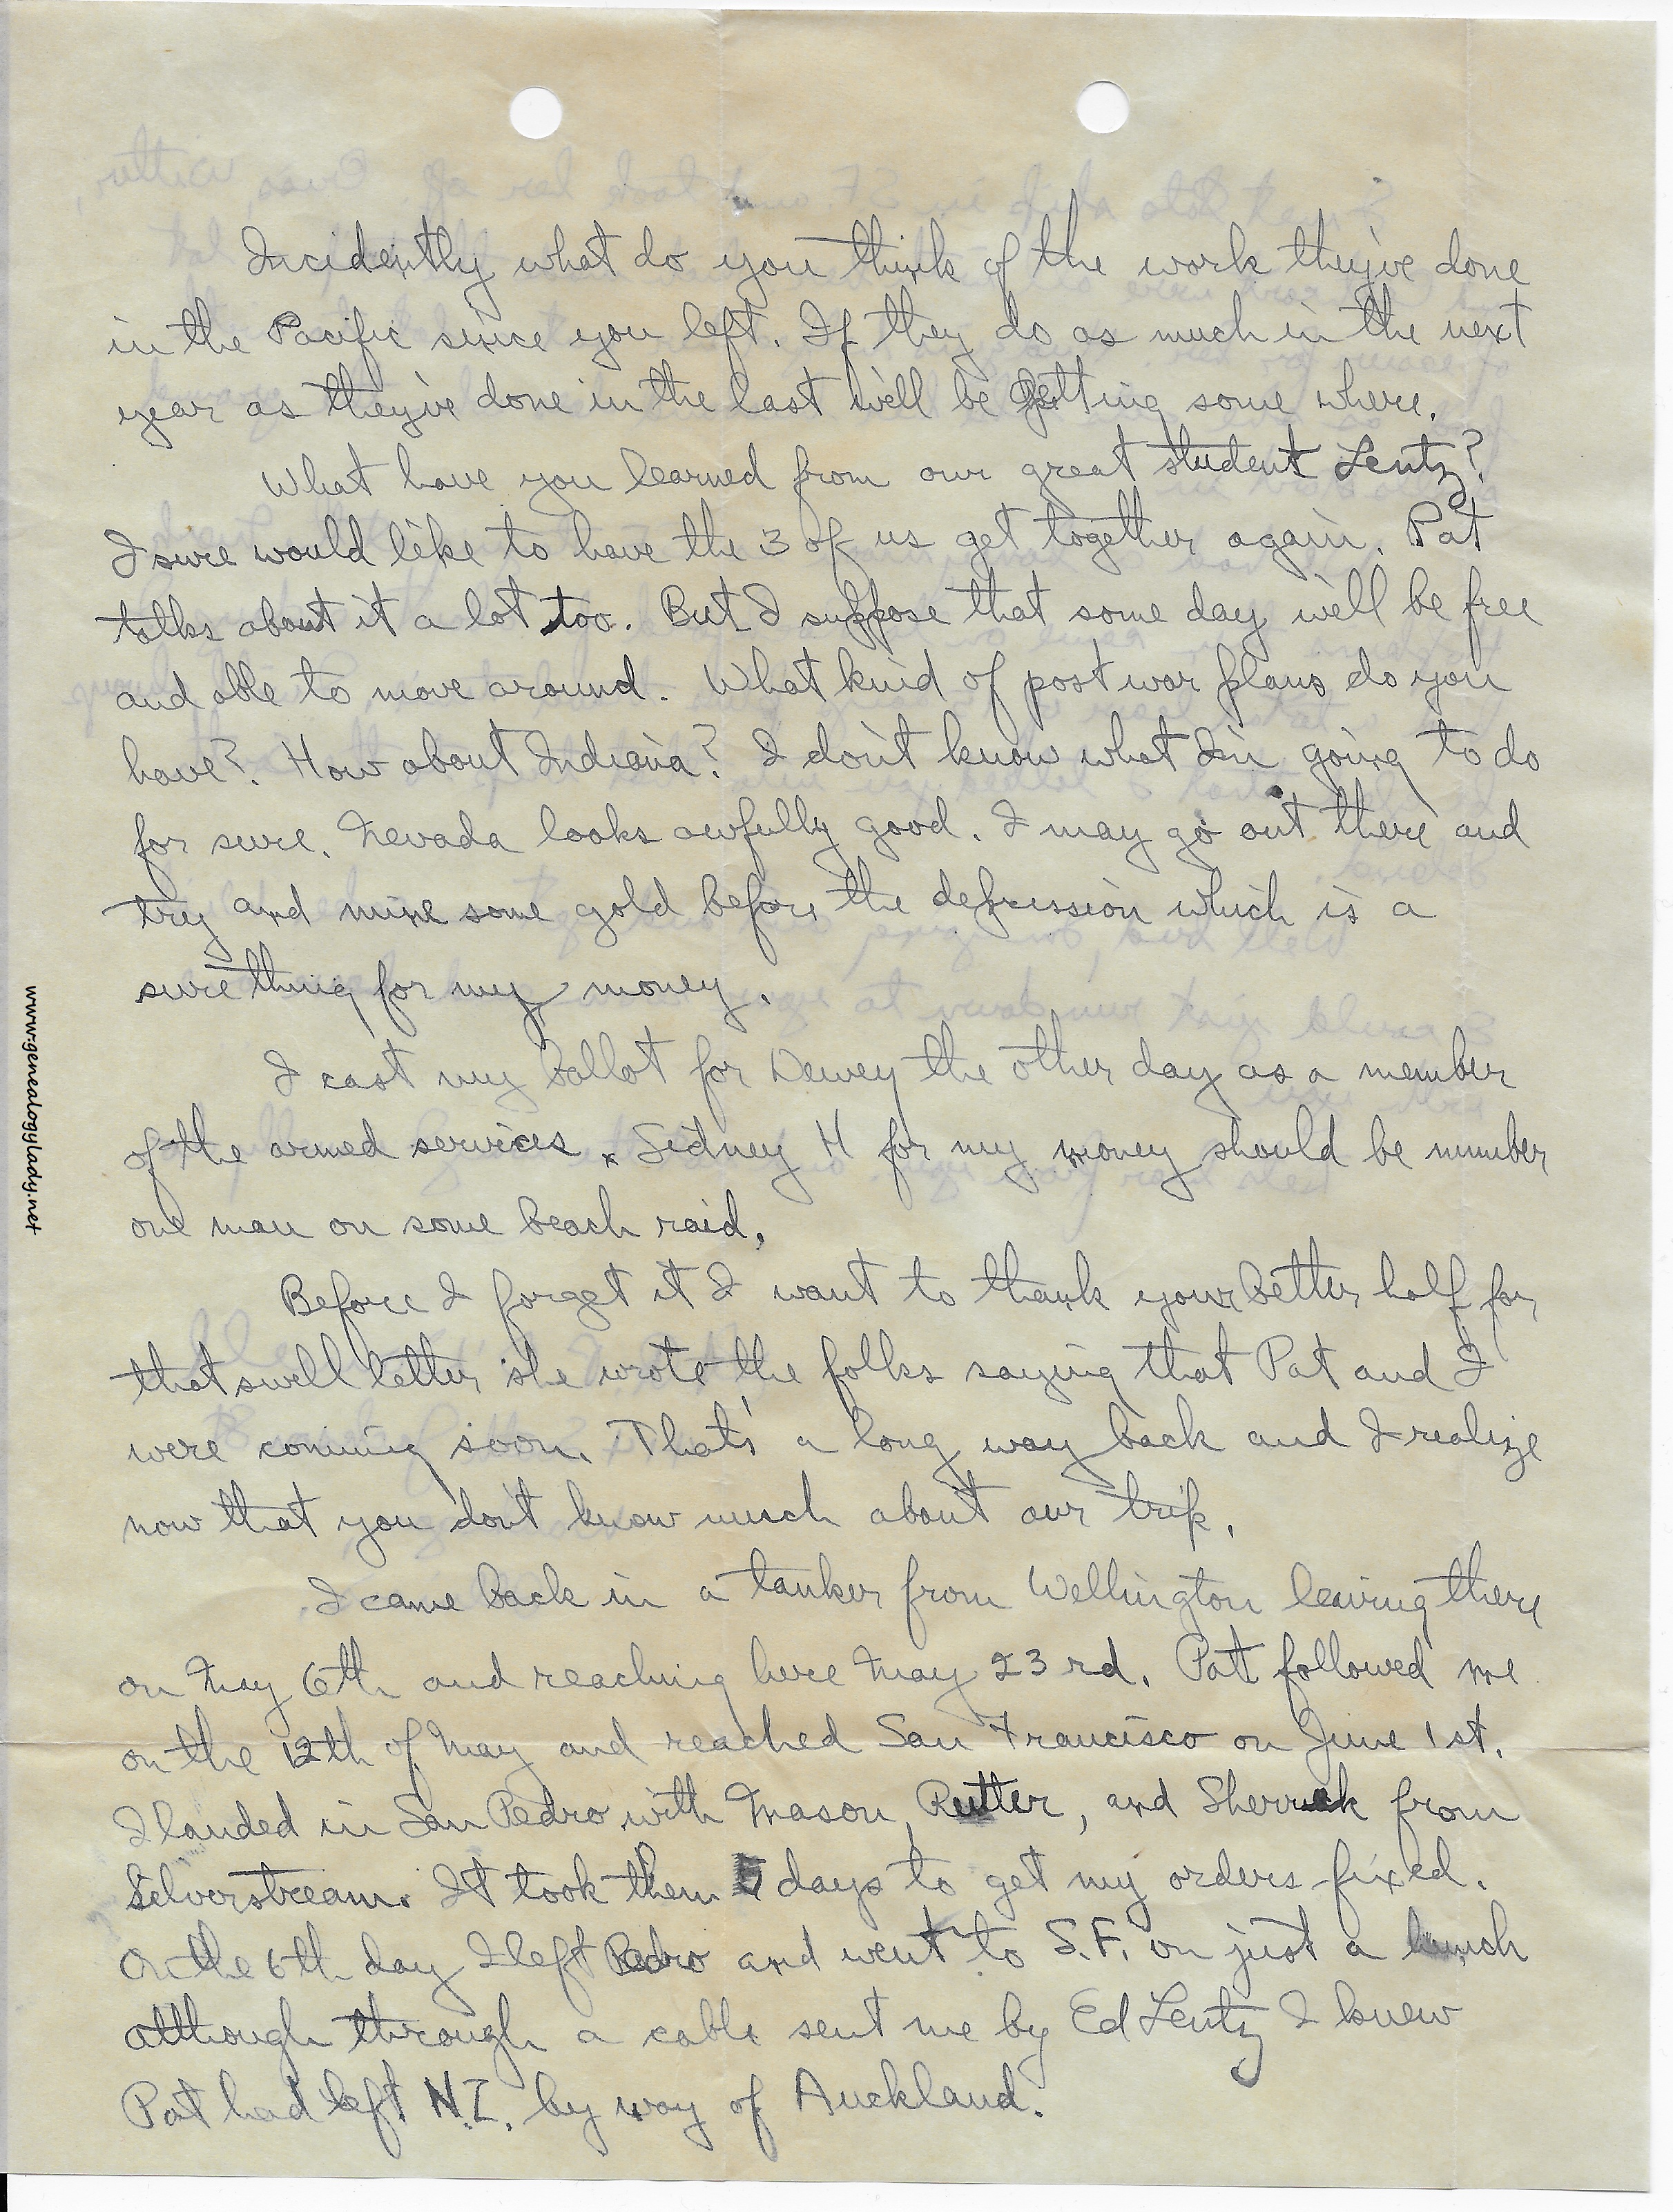 Incidently what do you think of the work they've done
in the Pacific since you left. If they do as much in the next
year as they've done in the last we'll be getting some where.
What have you learned from our great student Lentz?
I sure would like to have the 3 of us get together again. Pat
talks about it a lot too. But I suppose that some day we'll be free
and able to move around. What kind of post war plans do you
have? How about Indiana? I don't know what I'm going to do
for sure. Nevada looks awfully good. I may go out there and
try and mine some gold before the depression which is a
sure thing for my money.
I cast my ballot for Dewey the other day as a member
of the armed services. Sidney H for my money should be number
one man on some beach raid.
Before I forget it I want to thank your better half for
that swell letter she wrote the folks saying that Pat and I
were coming soon. That's a long way back and I realize
now that you don't know much about our trip.
I came back in a tanker from Wellington leaving there
on May 6th and reaching here May 23rd. Pat followed me
on the 12th of May and reached San Francisco on June 1st.
I landed in San Pedro with Mason, Rutter, and Sherrak from
Silverstream. It took them 5 days to get my orders fixed.
On the 6th day I left Pedro and went to S.F. on just a hunch
although through a cable sent me by Ed Lentz I knew
Pat had left N.Z. by way of Auckland.
www.genealogylady.net